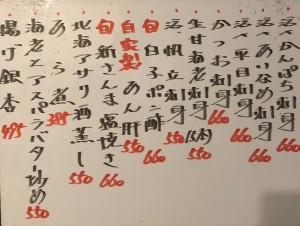 活〆かんぱち刺身
活〆あいなめ刺身
活〆平目刺身 660
かつお刺身 660
生甘海老刺身(5本) 550
活帆立刺身 550
旬 白子ポン酢 660
自家製 あん肝 550
旬 新さんま塩焼き 660
北海アサリ酒蒸し 550
あら煮 385
海老とアスパラバター炒め 550
揚げ銀杏 495